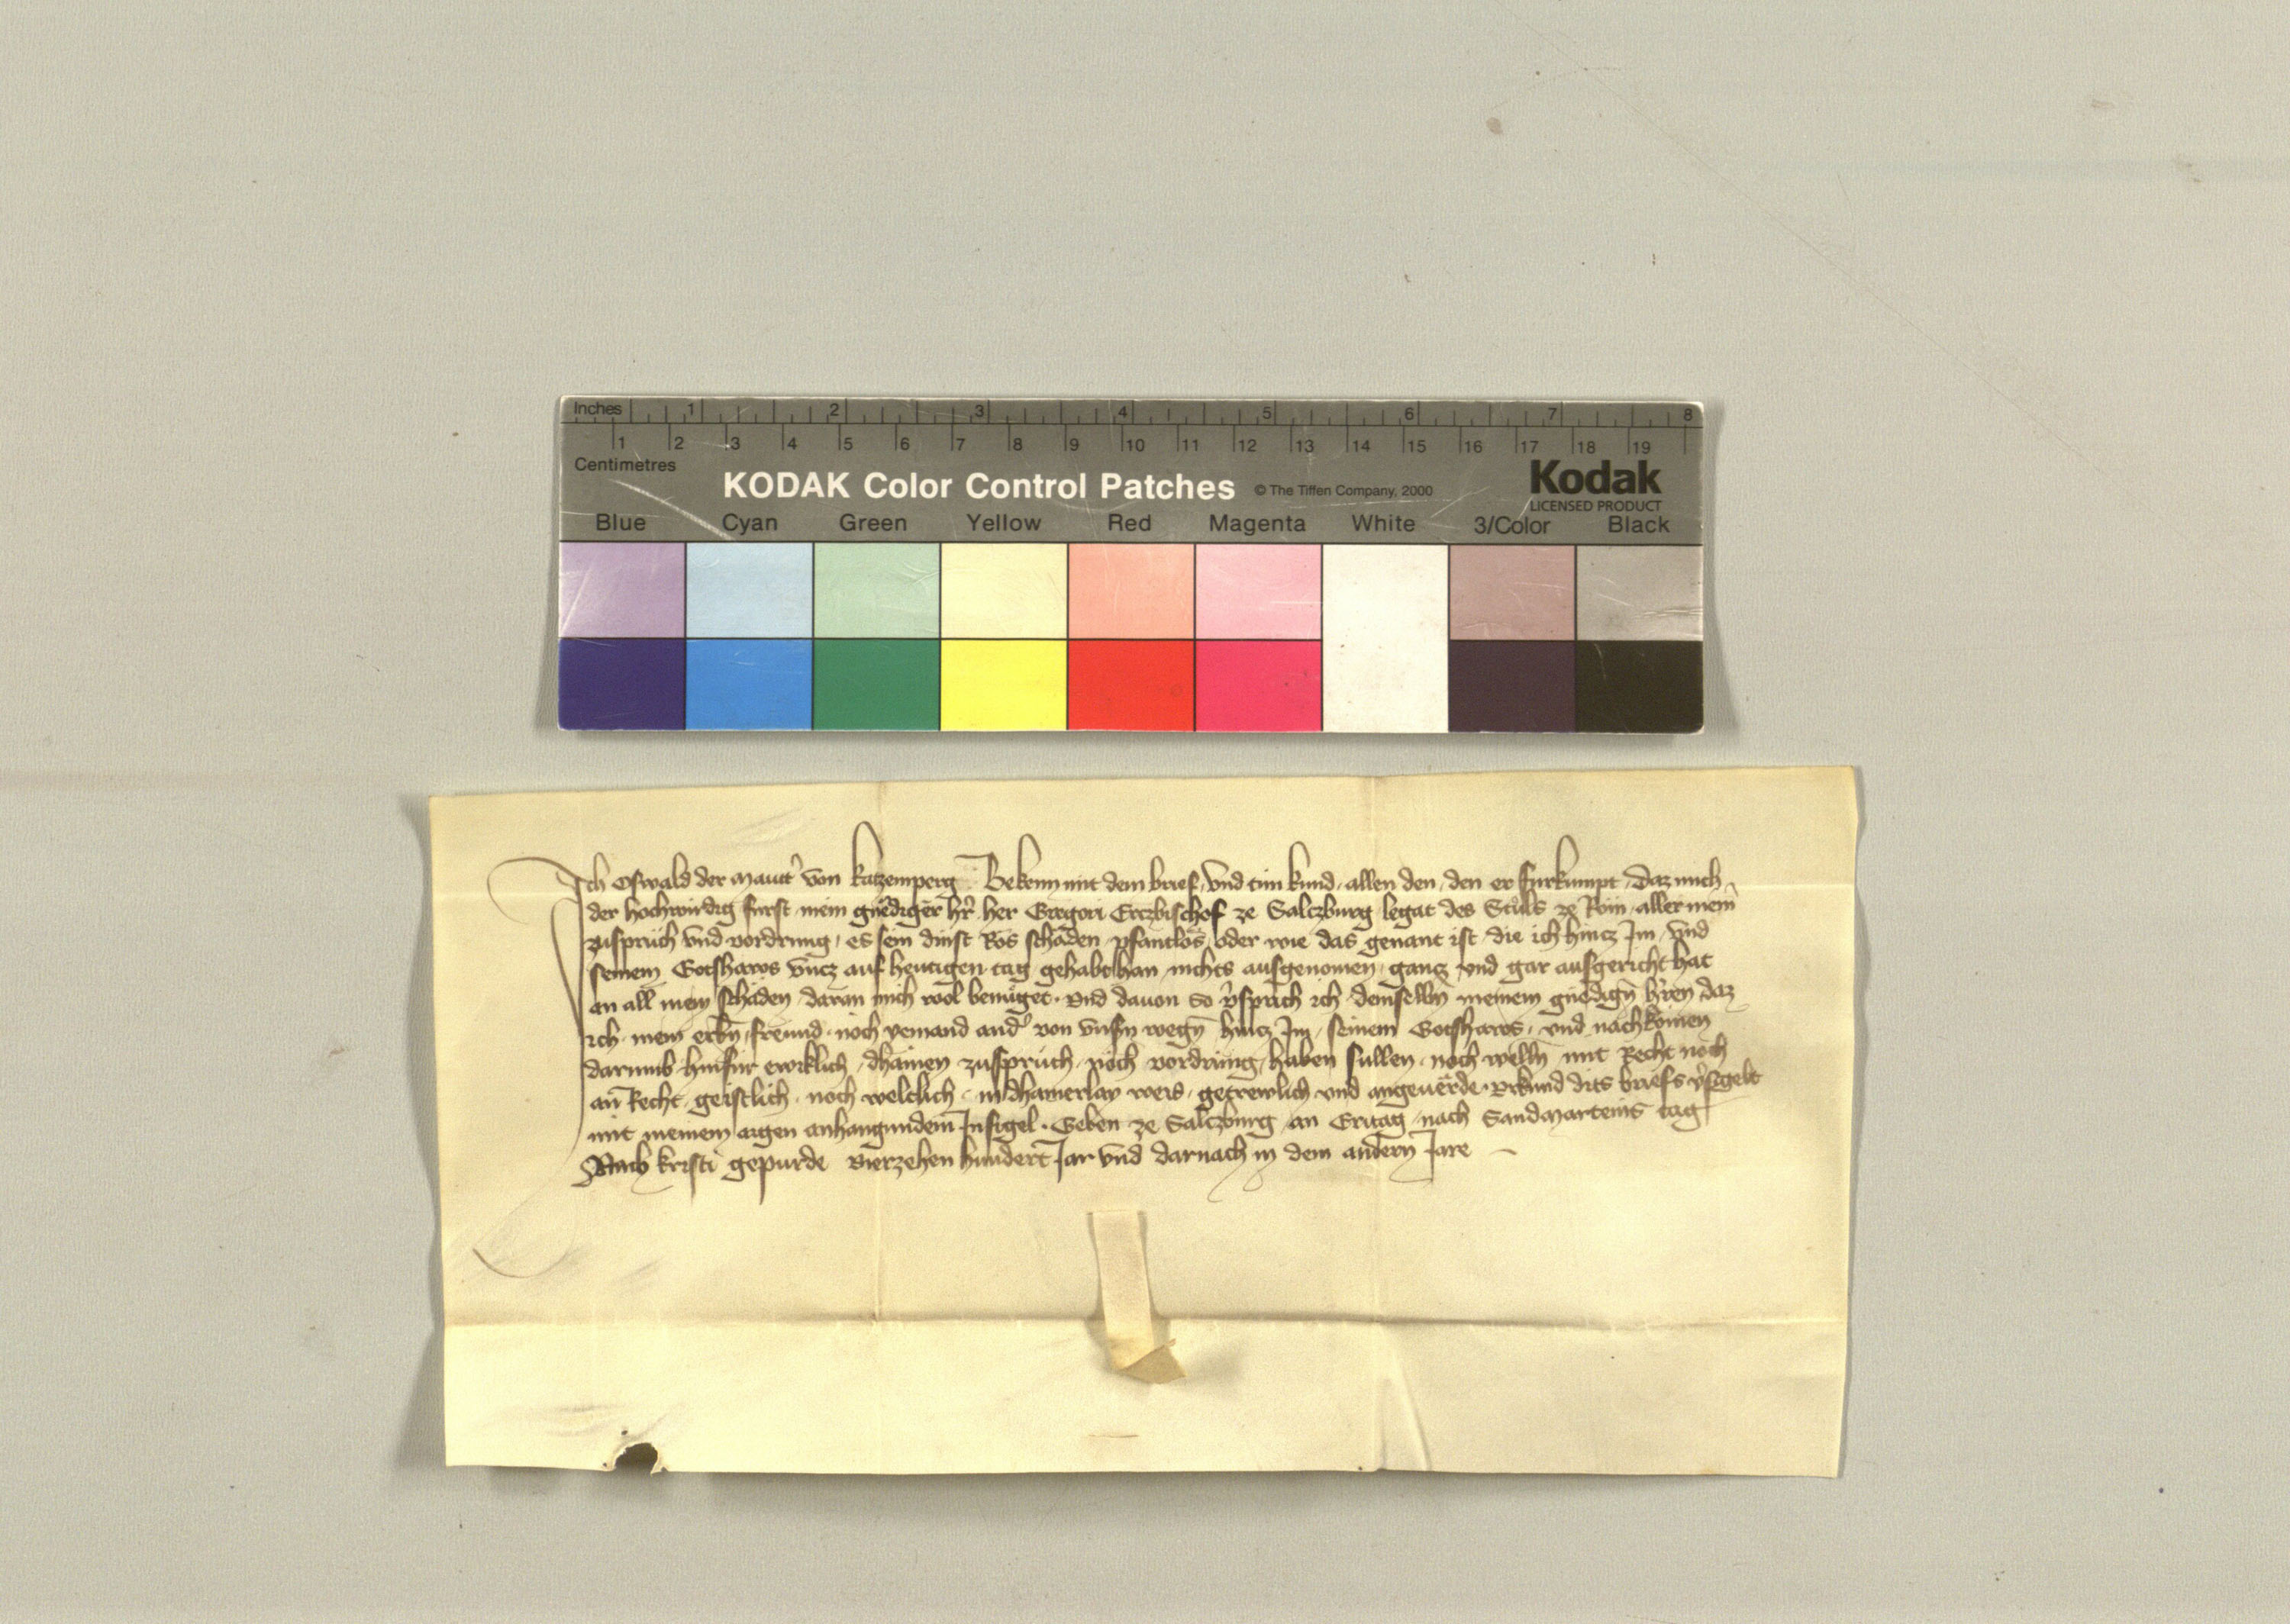 Inches 1 2 3 4 5 6 7 8
1 2 3 4 5 6 7 8 9 10 11 12 13 14 15 16 17 18 19
Centimetres
KODAK Color Control Patches © The Tiffen Company, 2000 Kodak
LICENSED PRODUCT
Blue Cyan Green Yellow Red Magenta White 3/Color Black
Ich Oswald der Mautt' von Katzemperg Bekenn mit dem brief, vnd tun kund, allen den, den er furkumpt, Daz mich
der hochwirdig furst mein gnediger hr̄ her Gregori Erczbischof ze Salczburg legat des Stuls ze Rom, aller mein
zuspruch vnd vordrung, es sein dinst Ros schaden pfantlos, oder wie das genant ist die ich hincz Im, vnd
seinem Gotshaws vncz auf heutigen tag gehabt han nichts ausgenomen, gancz vnd gar ausgericht hat
an all mein schaden daran mich wol benuget. Vnd dauon so v'sprich ich demselbn̄ meinem gnedign̄ h'ren daz
ich mein erbn̄, freund, noch yemand and' von vnsn̄ wegn̄ hincz Im, seinem Gotshaws, vnd nachkomen
darumb hinfur ewiklich, dhainen zuspruch, noch vordrung, haben sullen noch welln̄ mit Recht noch
an Recht, geistlich noch weltlich in dhainerlay weis, getrewlich vnd angeuerde. Vrkund dits briefs v'sigelt
mit meinem aigen anhangundem Insigel. Geben ze Salczburg an Eritag nach Sandmarteins tag
Nach kristi gepurde vierzehen hundert Jar vnd darnach in dem andern Jare